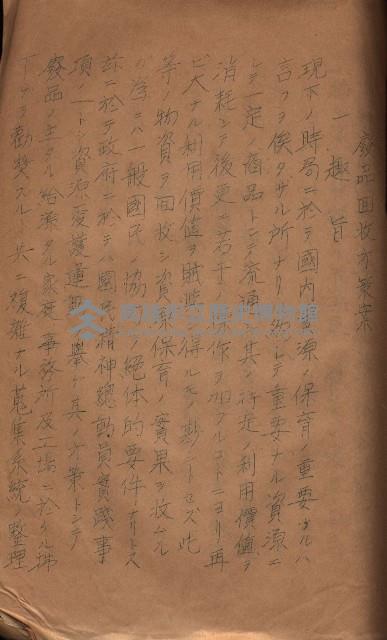 廢品回收方策案
一、趣旨
現下ノ時局ニ於テ國內資源ノ保育ノ重要ナルハ
言フヲ俟タザル所ナリ 而シテ重要ナル資源ニ
シテ一定ノ商品トシテ流通シ其ノ所定ノ利用價値ヲ
消耗シテ後更ニ若干ノ操作ヲ加フルコトニヨリ再
ビ大ナル利用價値ヲ賦與シ得ルモノ尠シトセズ此
等ノ物資ヲ回收シ資源保育ノ實果ヲ收ムル
ノ爲ニハ一般國民ノ協力ヲ絕体的要件ナリトス
茲ニ於テ政府ニ於テハ國民精神總動員實踐事
項ノ一トシ資源愛護運動ヲ擧ゲ其ノ方策トシテ
廢品ノ主タル給源タル家庭、事務所及工場ニ於ケル拂
下ゲヲ勸奬スルト共ニ複雜ナル蒐集系統ノ整理
高雄市立歷史博物館